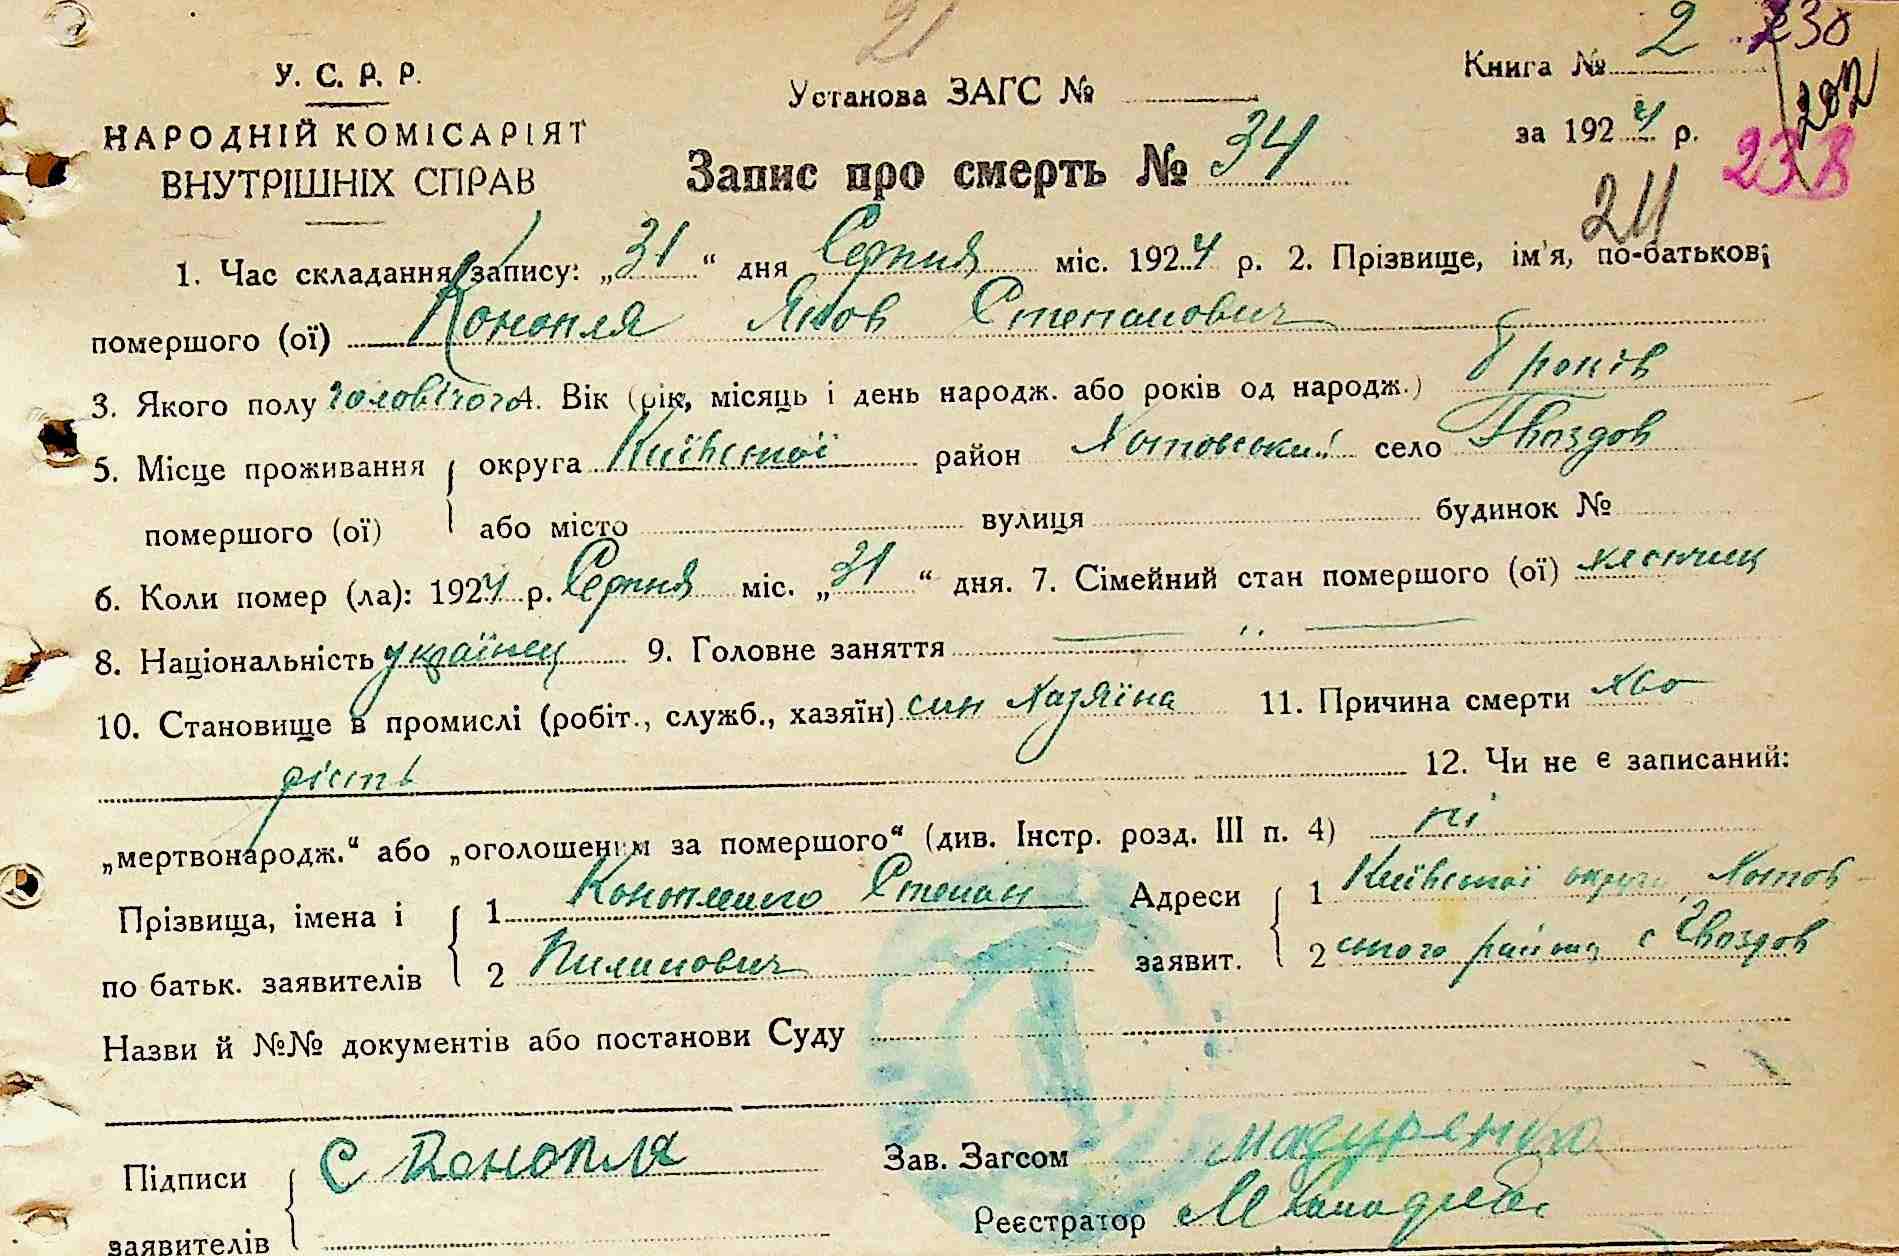 21
Книга № 2 230
202
238
У. С. Р. Р.
НАРОДНІЙ КОМІСАРІЯТ
ВНУТРІШНІХ СПРАВ
Установа ЗАГС №
за 1924 р.
Запис про смерть № 34
24
1. Час складання запису: „31“ дня Серпня міс. 1924 р. 2. Прізвище, ім'я, по-батькові
помершого (ої) Конопля Яков Степанович
3. Якого полу чоловічого 4. Вік (рік, місяць і день народж. або років од народж.) років
5. Місце проживання округа Київської район Хотовський село Гвоздов
помершого (ої) або місто вулиця будинок №
6. Коли помер (ла): 1924 р. Серпня міс. „31“ дня. 7. Сімейний стан помершого (ої) хлопчик
8. Національність українец 9. Головне заняття — „ —
10. Становище в промислі (робіт., служб., хазяїн) син хазяїна 11. Причина смерти хво
рість 12. Чи не є записаний:
„мертвонародж.“ або „оголошеним за помершого“ (див. Інстр. розд. III п. 4) ні
Прізвища, імена і 1 Степан Адреси 1 Київської округи, Хотов-
по батьк. заявителів 2 Пилипович заявит. 2 ського району с Гвоздов
Назви й №№ документів або постанови Суду
Підписи С Конопля Зав. Загсом Мазуренко
заявителів Реєстратор